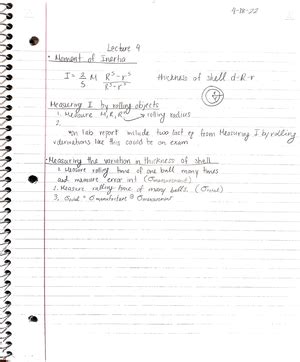 4-18-22
Lecture 4
• Moment of Inertia
I = 2/5 M (R⁵ - r⁵)/(R³ - r³) thickness of shell d=R-r
Measuring I by rolling objects
1. Measure M, R, R' → rolling radius
2.
*In lab report include two last eq from Measuring I by rolling
*derivations like this could be on exam
• Measuring the variation in thickness of shell
1. Measure rolling time of one ball many times
and measure error in t (σmeasurement)
2. Measure rolling time of many balls. (σtotal)
3. σtotal = σmanufacture ⊕ σmeasurement